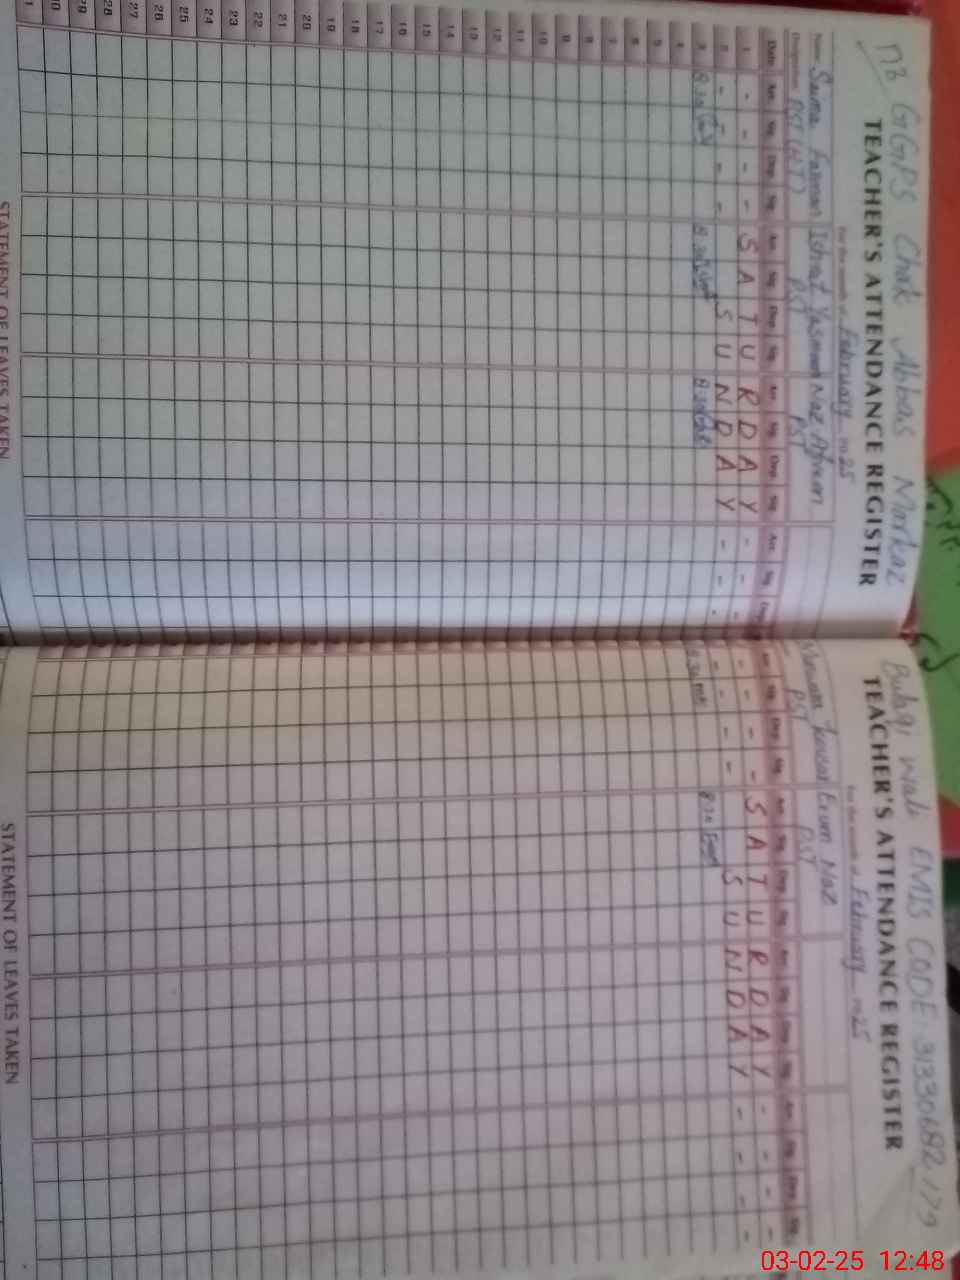 GGPS Chak Abbas Markaz
TEACHER'S ATTENDANCE REGISTER
For the month of February 2025
Name Saima Ishrat Yasmeen Naz Afreen
Designation PST (H.T) PST PST
Date Arr. Sig. Dep. Sig. Arr. Sig. Dep. Sig. Arr. Sig. Dep. Sig. Arr. Sig. Dep.
1 - - - - S A T U R D A Y - - -
2 - - - - S U N D A Y - - -
3 8:30 8:30 8:30
4
5
6
7
8
9
10
11
12
13
14
15
16
17
18
19
20
21
22
23
24
25
26
27
28
29
30
STATEMENT OF LEAVES TAKEN
Bulaqi wali EMIS CODE: 31330682 179
TEACHER'S ATTENDANCE REGISTER
For the month of February 2025
Erum Naz
PST PST
Arr. Sig. Dep. Sig. Arr. Sig. Dep. Sig. Arr. Sig. Dep. Sig. Arr. Sig. Dep. Sig.
- - - - S A T U R D A Y - - - -
- - - - S U N D A Y - - - -
8:30 8:30
STATEMENT OF LEAVES TAKEN
03-02-25 12:48